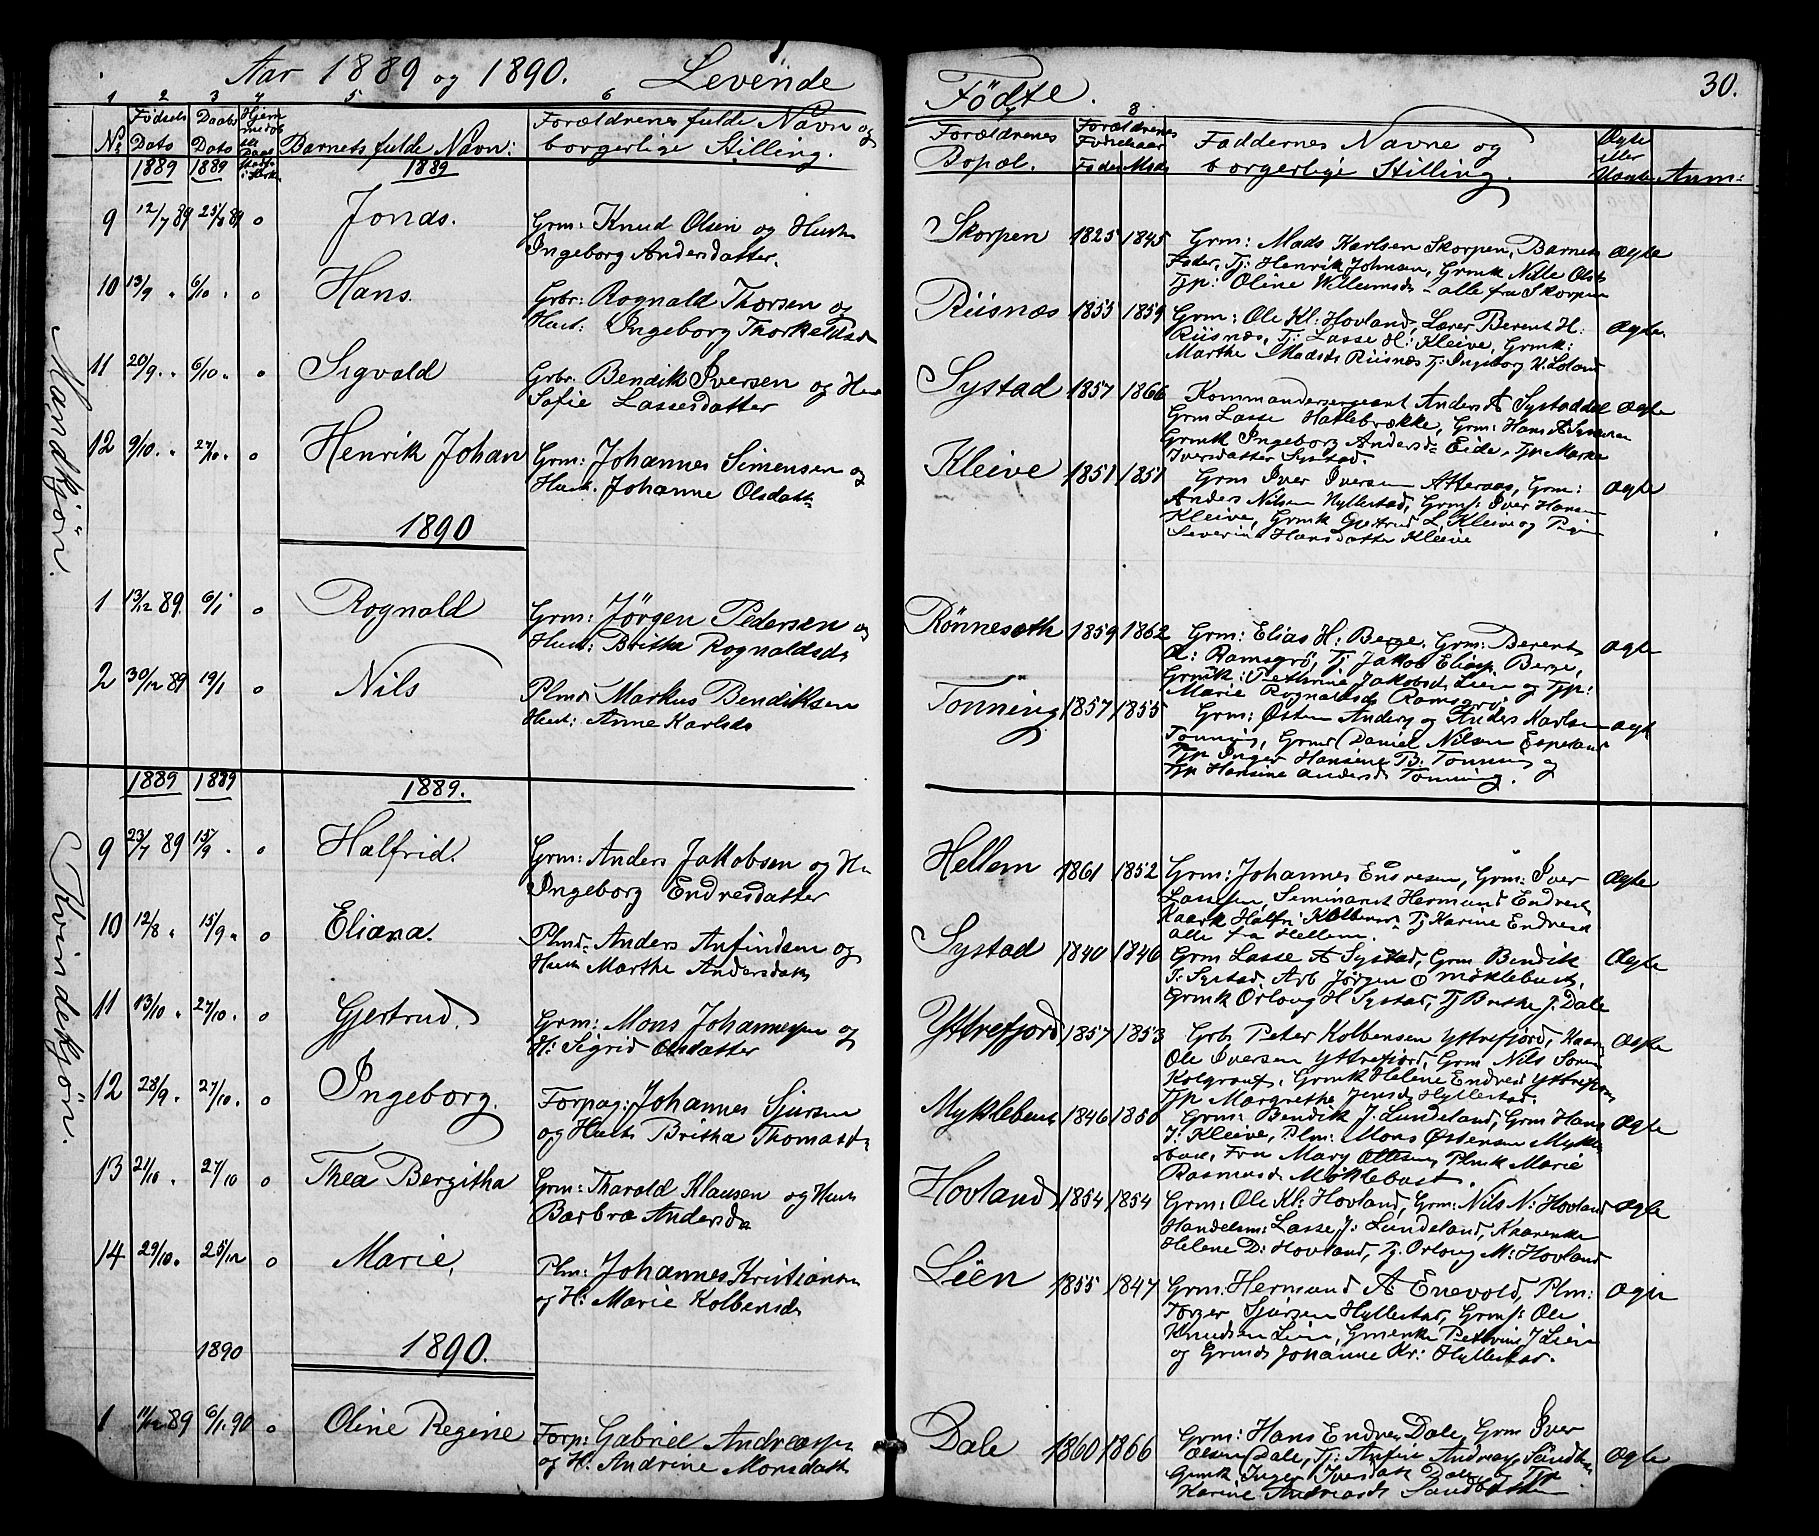 Aar 1889 og 1890. Levende
1 2 3 4 5 6
No Fødsels Dato Daabs Dato Barnets fulde Navn: Forældrenes fulde Navn og
borgerlige Stilling.
1889 1889 1889
Mandkjön.
9 12/7 89 25/8 89 o Jonds. Grm: Knud Olsen og Hustr
Ingeborg Andersdatter.
10 13/9 " 6/10 . o Hans. Grbr: Rognald Thorsen og
Hust: Ingeborg Thorkeldsd
11 20/9 . 6/10 . o Sigvald Grbr: Bendik Iversen og Hu
Sofie Lassesdatter
12 9/10 . 27/10 . o Henrik Johan Grm: Johannes Simensen og
Hust. Johanne Olsdatt
1890
1 13/12 89. 6/1 o Rognald Grm: Jörgen Pedersen og
Hust: Britha Rognaldsd
2 30/12 89 19/1 o Nils Plmd: Markus Bendiksen
Hust: Anne Karlsd
1889 1889 1889.
Kvindekjön.
9 23/7 89 15/9 . o Halfrid. Grm: Anders Jakobsen og Hu
Ingeborg Endresdatter
10 12/8 " 15/9 " o Eliana. Plmd: Anders Anfindsen og
Hust Marthe Andersdatt
11 13/10 " 27/10 . o Gjertrud. Grm: Mons Johannesen og
H: Sigrid Olsdatter
12 28/9 . 27/10 . o Ingeborg. Forpag: Johannes Sjursen
og Hust Britha Thomasd
13 21/10 . 27/10 o Thea Bergitha Grm: Tharald Klausen og Hust
Barbra Andersda
14 29/10 . 25/12 o Marie, Plm: Johannes Kristians
og H: Marie Kolbensd
1890 1890.
1 11/12 89 6/1 90 o Oline Regine Forp: Gabriel Andreas
og H: Andrine Monsdatt
Födte. 30.
8
Forældrenes Bopæl. Forældrenes Födselsaar Fader Moder Faddernes Navne og
borgerlige Stilling. Ægte eller Uægte Anm:
Skorpen 1825 1845 Grm: Mads Karlsen Skorpen, Barnets Ægte
Fader, Tj: Henrik Johnsen, Grmk Nille Olsd
Tjp: Oline Willumsd - alle fra Skorpen
Riisnæs 1853 1859 Grm: Ole Kl: Hovland, Lærer Berent H: Ægte.
Riisnæs, Tj: Lasse H: Kleive, Grmk:
Marthe Madsd Riisnæs Tj: Ingeborg
Systad 1857 1866 Kommandersergeant Anders A Systaddal Ægte
Grm Lasse Hatlebrække, Grm: Hans A
Grmk Ingeborg Andersd Eide, Tjp Marthe
Iversdatter Systad.
Kleive 1851 1851 Grm Iver Iversen Atteraas, Grm: Ægte
Anders Nilsen Hyllestad, Grms: Iver Hansen
Kleive, Grmk Gjertrud L. Kleive og Pige
Severine Hansdatter Kleive
Rönneseth 1859 1862 Grm: Elias H: Berge, Grm: Berent Ægte
O: Ramsgrö, Tj: Jakob Eliass Berge,
Grmk: Pethrine Jakobsd Lien og Tjp:
Marie Rognaldsd Ramsgrö
Tonning 1857 1855 Grm: Østen Anders og Anders Karlsen Ægte
Tonning, Grms Daniel Nilsen Espeland
Tjp Inger Hansene B: Tonning og
Tjp Hansine Andersd Tonning.
Hellem 1861 1852 Grm: Johannes Endresen, Grm: Iver Ægte
Lassesen, Seminarist Hermund Endresen
Kaark Halfri Kolbensd Tj Karine Endresd
alle fra Hellem.
Systad 1840 1846 Grm Lasse A Systad, Grm Bendik Ægte
T: Systad, Arb Jørgen O Möklebust,
Grmk Orloug H Systad, Tj Brithe J. Dale
Yttrefjord 1857 1853 Grb Peter Kolbensen Yttrefjord, Kaarm Ægte
Ole Iversen Yttrefjord, Grm Nils Soren
Kolgrout, Grmk Helene Endresd Yttrefjord
Tjp Margrethe Jensd Hyllestad.
Myklebust 1846 1850 Grm: Bendik J. Lundeland, Grm Hans Ægte
J: Kleive, Plm: Mons Østensen Mykle
bust, Fru Mary Ottesen, Plmk Marie
Rasmusd Möklebust.
Hovland 1854 1854 Grm: Ole Kl: Hovland, Grm: Nils N: Hovland Ægte
Handelsm: Lasse J: Lundeland, Kaarenke
Helene D: Hovland, Tj Orloug M: Hovland
Lien 1855 1847 Grm: Hermund A Enevold, Plm: Ægte
Torger Sjursen Hyllestad, Grms: Ole
Knudsen Lien, Gmenke Pethrine J Lien
og Grmds Johanne Kr: Hyllestad.
Dale 1860 1866 Grm: Hans Endres Dale, Grm Iver Ægte
Olsen Dale, Tj: Anfin Andreas
Grmk Inger Iversdatt Dale og Tjp
Karine Andreasd